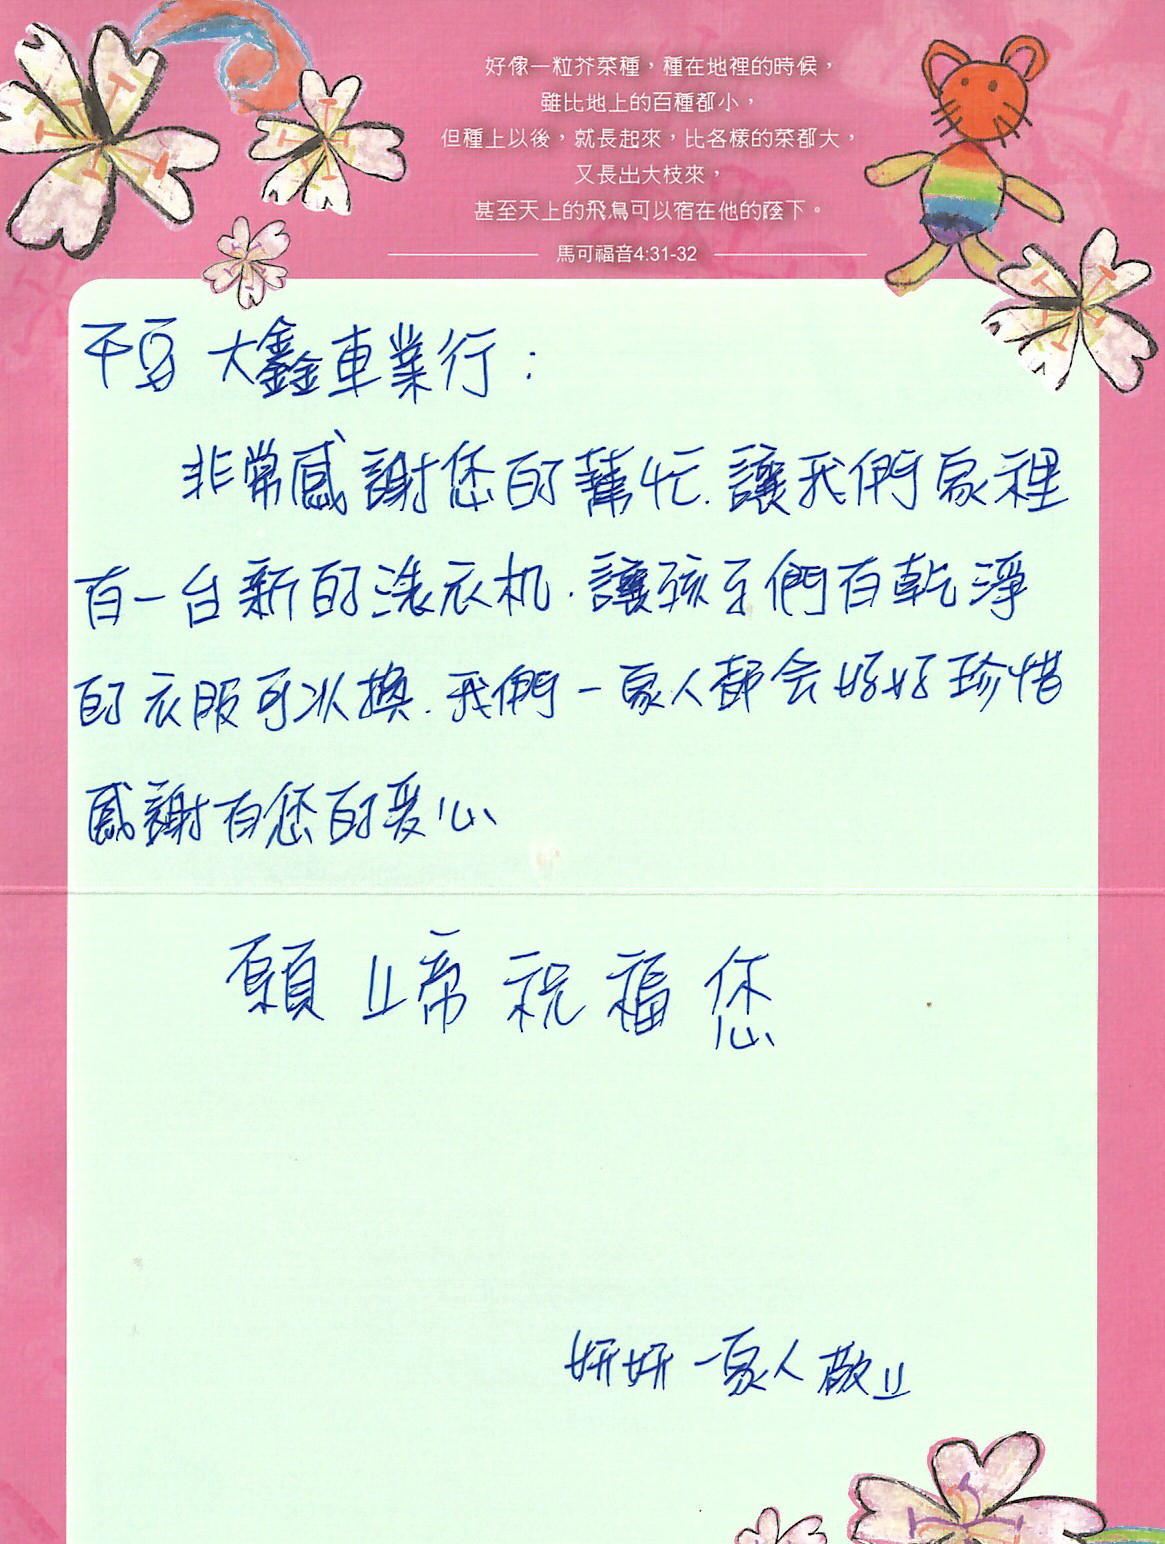 好像一粒芥菜種，種在地裡的時候，
雖比地上的百種都小，
但種上以後，就長起來，比各樣的菜都大，
又長出大枝來，
甚至天上的飛鳥可以宿在他的蔭下。
馬可福音4:31-32
大鑫車業行：
非常感謝您的幫忙.讓我們家裡
有一台新的洗衣机.讓孩子們有乾淨
的衣服可以換.我們一家人都会好好珍惜
感謝有您的愛心
願上帝祝福您
妍妍一家人敬上